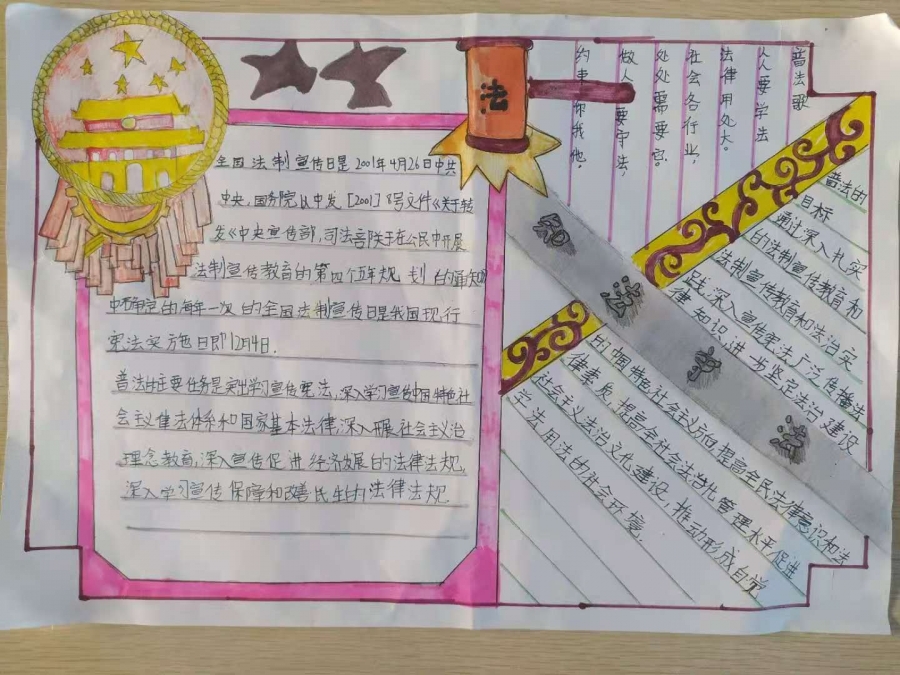 法
普法歌
人人要学法
法律用处大。
社会各行业，
处处需要它。
做人要守法，
约束你我他。
全国法制宣传日是2001年4月26日中共
中央，国务院以中发［2001］8号文件《关于转
发《中央宣传部，司法部关于在公民中开展
法制宣传教育的第四个五年规划的通知
中确定的每年一次的全国法制宣传日是我国现行
宪法实施日即12月4日.
普法的主要任务是突出学习宣传宪法，深入学习宣传中国特色社
会主义律法体系和国家基本法律，深入开展社会主义治
理念教育，深入宣传促进经济发展的法律法规，
深入学习宣传保障和改善民生的法律法规
知法守法
普法的
目标
通过深入扎实
的法制宣传教育和
法制宣传教育和法治实
践，深入宣传宪法广泛传播法
律知识，进一步坚定法治建设
中国特色社会主义方向提高全民法律意识和法
律素质，提高全社会法治化管理水平促进
社会主义法治文化建设，推动形成自觉
学法用法的社会环境.